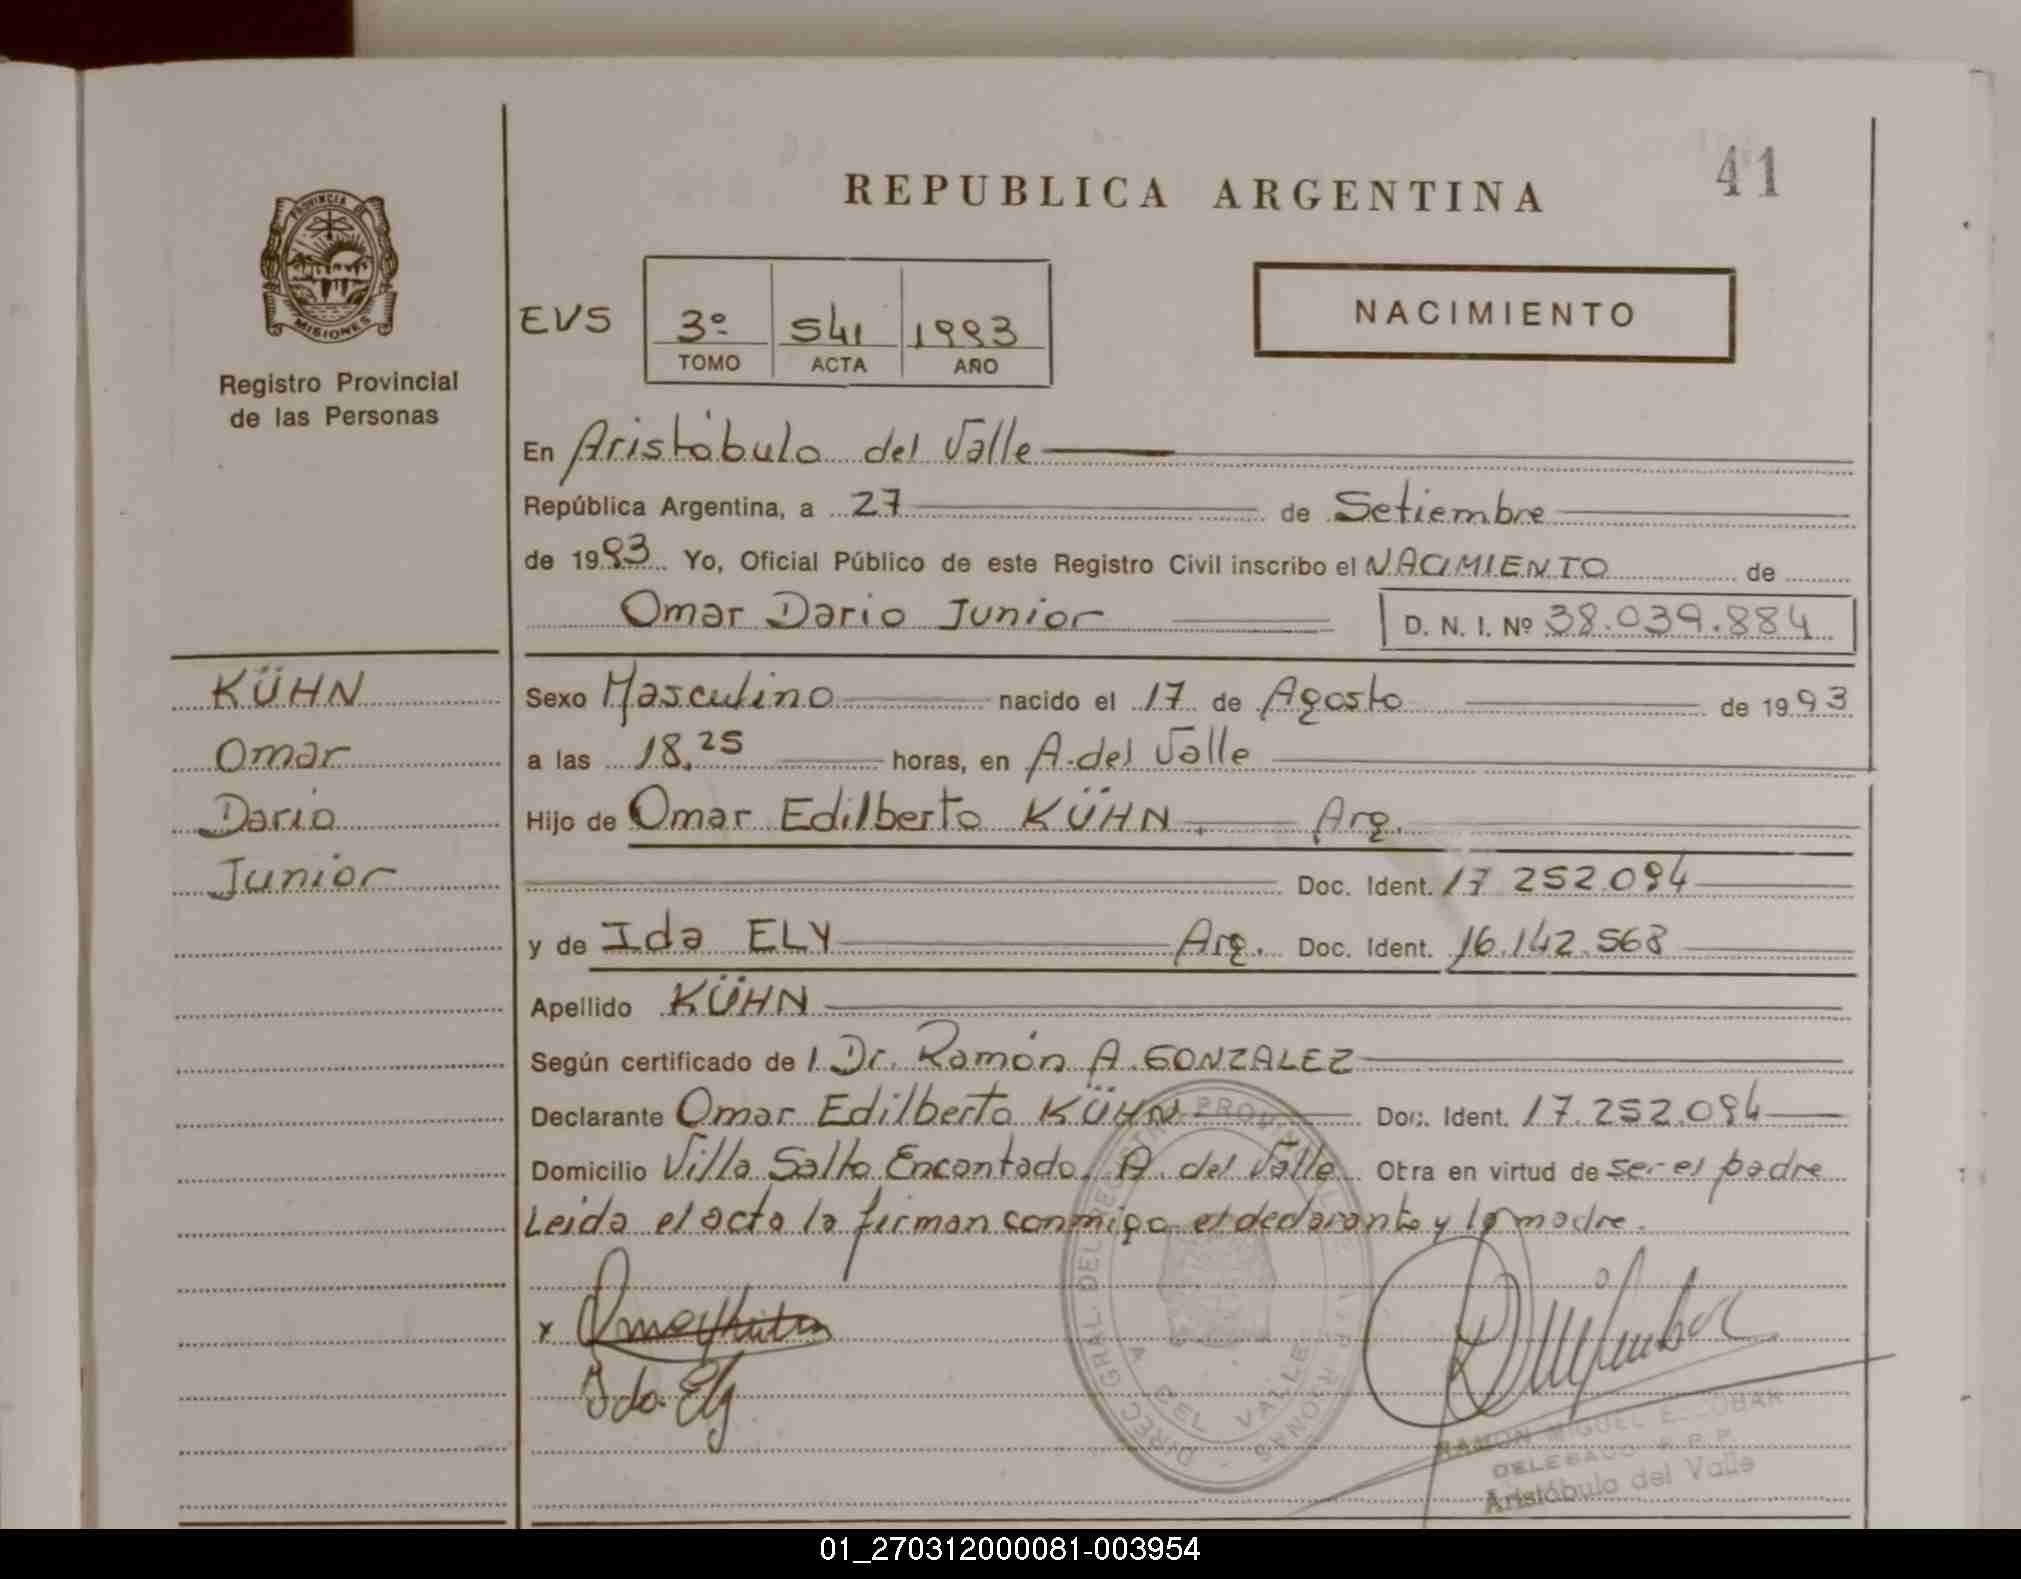 41
REPUBLICA ARGENTINA
PROVINCIA DE
MISIONES
Registro Provincial
de las Personas
NACIMIENTO
EVS 3º 541 1993
TOMO ACTA AÑO
En Aristóbulo del Valle
República Argentina, a 27 de Setiembre
de 1993 Yo, Oficial Público de este Registro Civil inscribo el NACIMIENTO de
Omar Dario Junior D. N. I. Nº 38.039.884
KÜHN
Omar
Dario
Junior
Sexo Masculino nacido el 17 de Agosto de 1993
a las 18,25 horas, en A. del Valle
Hijo de Omar Edilberto KÜHN, Arg.
Doc. Ident. 17 252.094
y de Ida ELY Arg. Doc. Ident. 16.142.568
Apellido KÜHN
Según certificado de Dr. Ramón A. GONZALEZ
Declarante Omar Edilberto KÜHN Doc. Ident. 17.252.094
Domicilio Villa Salto Encantado, A. del Valle Obra en virtud de ser el padre
Leida el acta la firman conmigo el declarante y la madre.
x
Ida Ely
A. DEL VALLE
RAMON MIGUEL ESCOBAR
DELEGADO R.P.P.
Aristóbulo del Valle
01_270312000081-003954